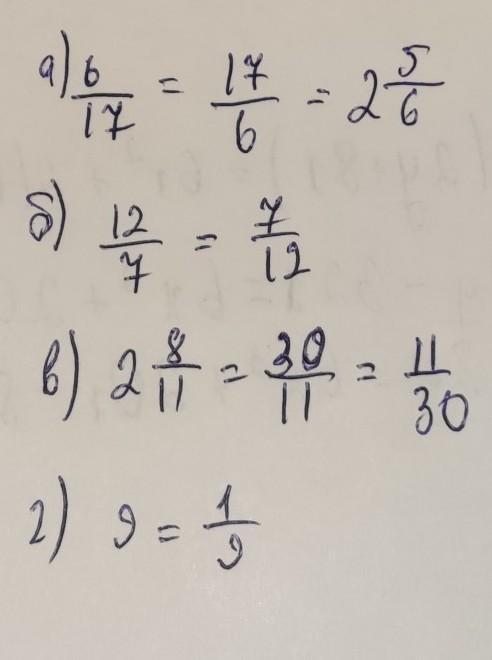 а) 6/17 = 17/6 = 2 5/6
б) 12/7 = 7/12
в) 2 8/11 = 30/11 = 11/30
г) 9 = 1/9